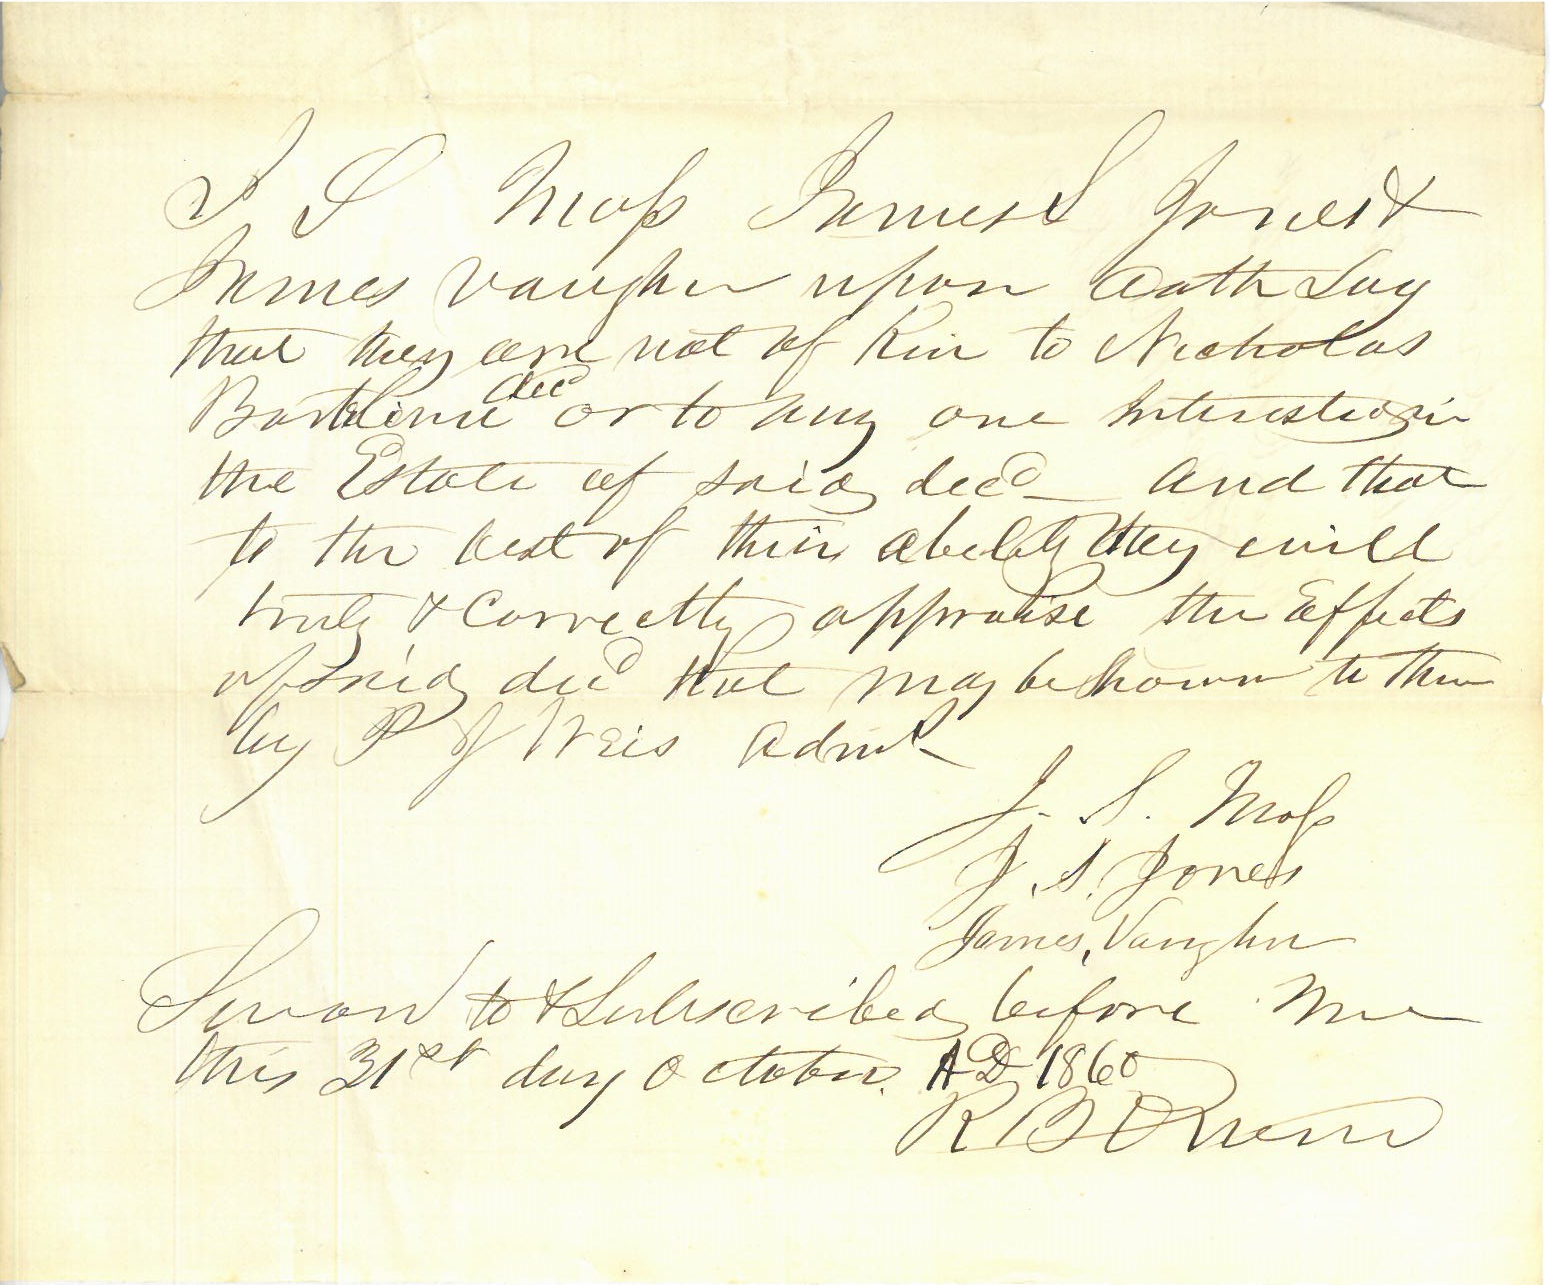 J S Moss James S Jones &
James Vaughn upon oath Say
that they are not of Kin to Nicholas
decd
or to any one Interested in
the Estate of said decd and that
to the best of their ability they will
truly & correctly appraise the Effects
of said decd that may be shown to them
by P J Weis Admr
J. S. Moss
J. S. Jones
James, Vaughn
Sworn to & Subscribed before Me
this 31st day October. AD 1860
R B